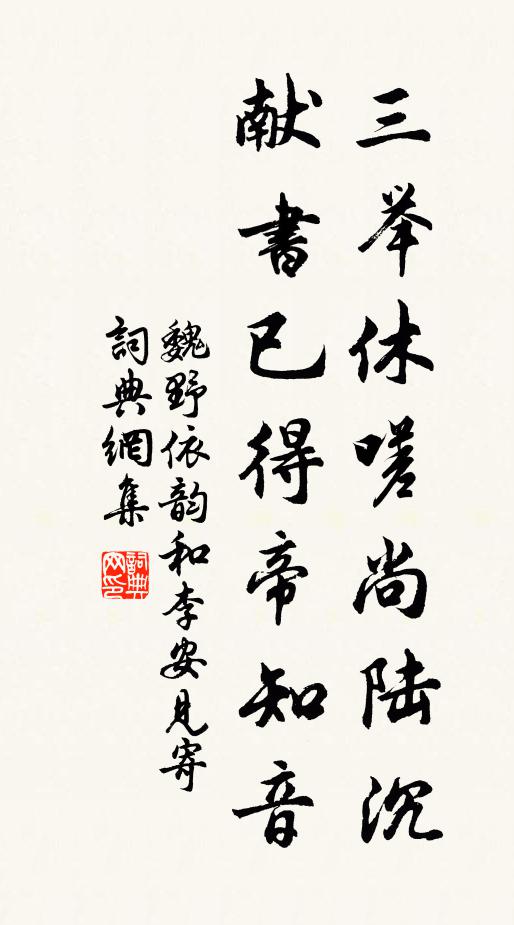 三举休嗟尚陆沉
献書已得帝知音
魏野依韵和李安見寄
詞典網集
詞典網印